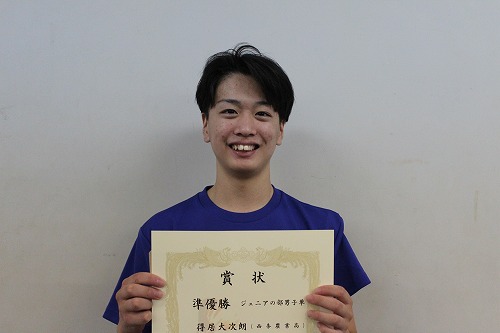 賞状
準優勝 ジュニアの部男子単
得居大次朗(西条農業高)